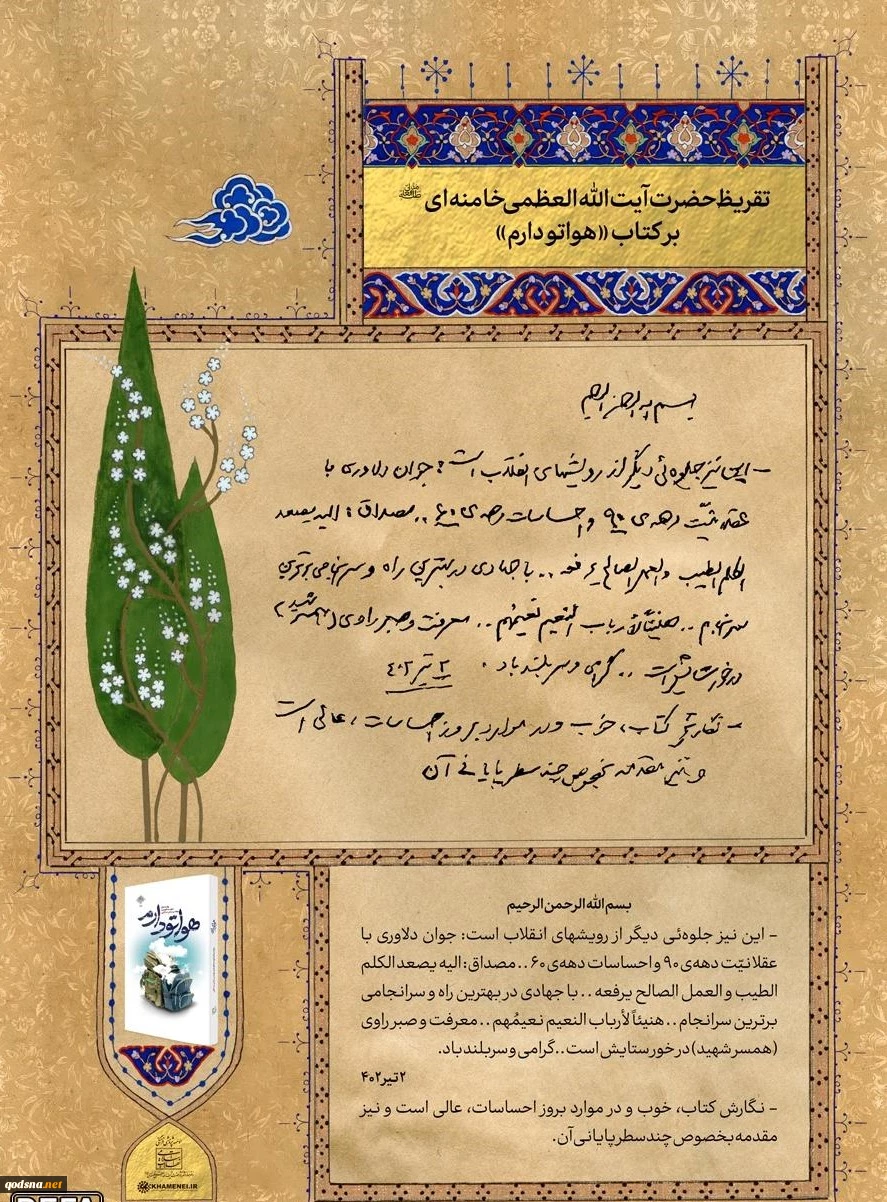 تقریظ حضرت آیت الله العظمی خامنه ای
بر کتاب «هواتو دارم»
بسم الله الرحمن الرحیم
- این نیز جلوه‌ئی دیگر از رویشهای انقلاب است: جوان دلاوری با
عقلانیّت دهه‌ی ۹۰ و احساسات دهه‌ی ۶۰ .. مصداق: الیه یصعد
الکلم الطیب و العمل الصالح یرفعه .. با جهادی در بهترین راه و سرانجامی برترین
سرانجام .. هنیئاً لأرباب النعیم نعیمُهم .. معرفت و صبر راوی (همسر شهید)
در خور ستایش است .. گرامی و سربلند باد.
۲ تیر ۴۰۲
- نگارش کتاب، خوب و در موارد بروز احساسات، عالی است
و نیز مقدمه بخصوص چند سطر پایانی آن
هواتو دارم
بسم الله الرحمن الرحیم
- این نیز جلوه‌ئی دیگر از رویشهای انقلاب است: جوان دلاوری با
عقلانیّت دهه‌ی ۹۰ و احساسات دهه‌ی ۶۰ .. مصداق: الیه یصعد الکلم
الطیب و العمل الصالح یرفعه .. با جهادی در بهترین راه و سرانجامی
برترین سرانجام .. هنیئاً لأرباب النعیم نعیمُهم .. معرفت و صبر راوی
(همسر شهید) در خور ستایش است .. گرامی و سربلند باد.
۲ تیر ۴۰۲
- نگارش کتاب، خوب و در موارد بروز احساسات، عالی است و نیز
مقدمه بخصوص چند سطر پایانی آن.
KHAMENEI.IR
qodsna.net